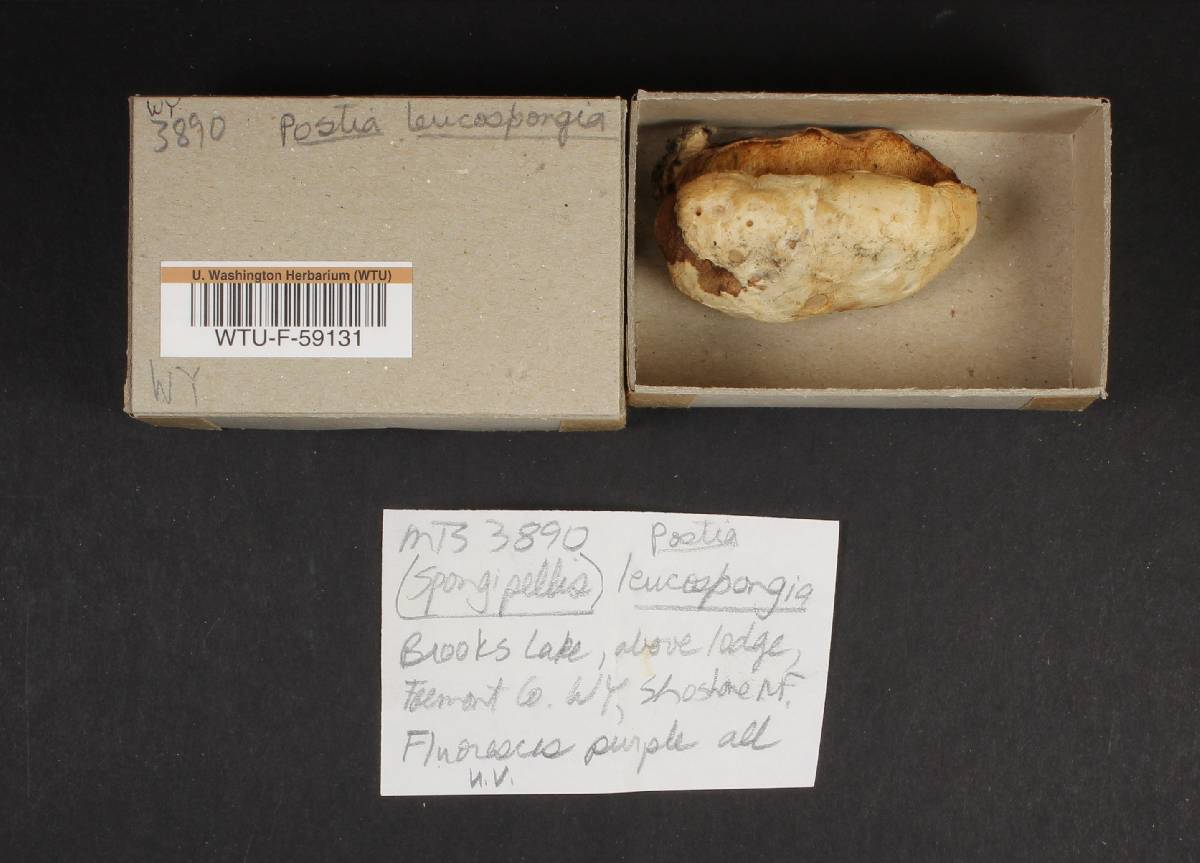 WY
3890 Postia leucospongia
U. Washington Herbarium (WTU)
WTU-F-59131
WY
MTB 3890 Postia
(Spongipellis) leucospongia
Brooks Lake, above lodge,
Fremont Co. WY, Shoshone N.F.
Fluoresces purple all
u.v.